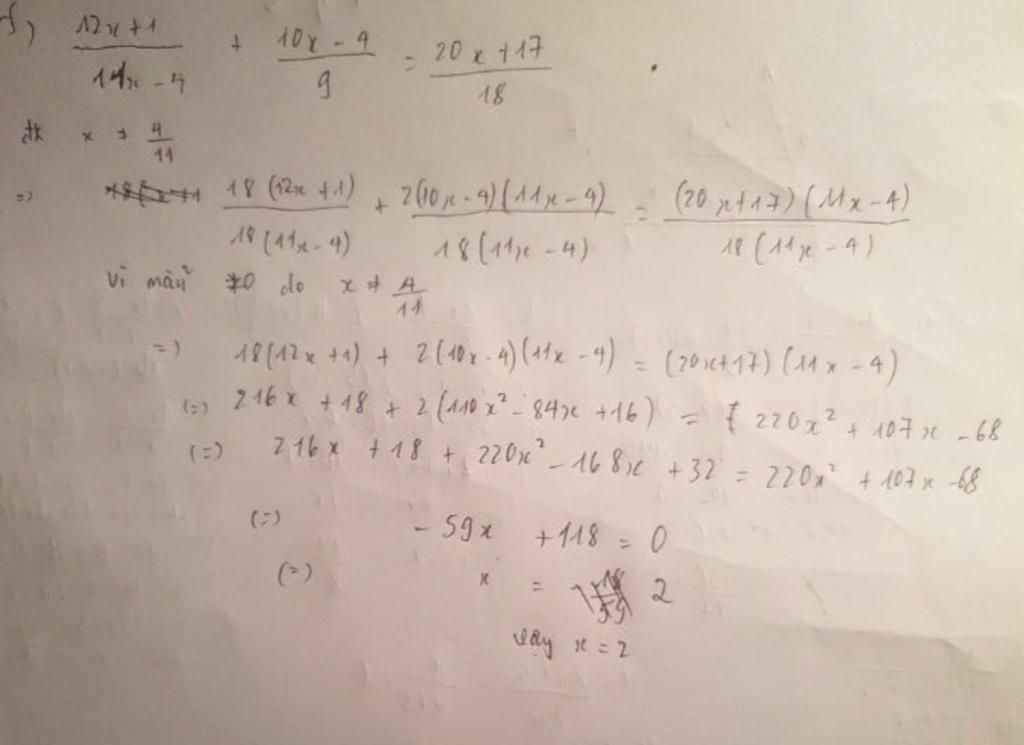 f) \frac{12x+1}{11x-4} + \frac{10x-4}{9} = \frac{20x+17}{18}
đk x ≠ \frac{4}{11}
=> \frac{18(12x+1)}{18(11x-4)} + \frac{2(10x-4)(11x-4)}{18(11x-4)} = \frac{(20x+17)(11x-4)}{18(11x-4)}
vì mẫu ≠0 do x ≠ \frac{4}{11}
=> 18(12x+1) + 2(10x-4)(11x-4) = (20x+17)(11x-4)
(=) 216x + 18 + 2(110x² - 84x + 16) = 220x² + 107x - 68
(=) 216x + 18 + 220x² - 168x + 32 = 220x² + 107x - 68
(=) - 59x + 118 = 0
(=) x = 2
vậy x = 2